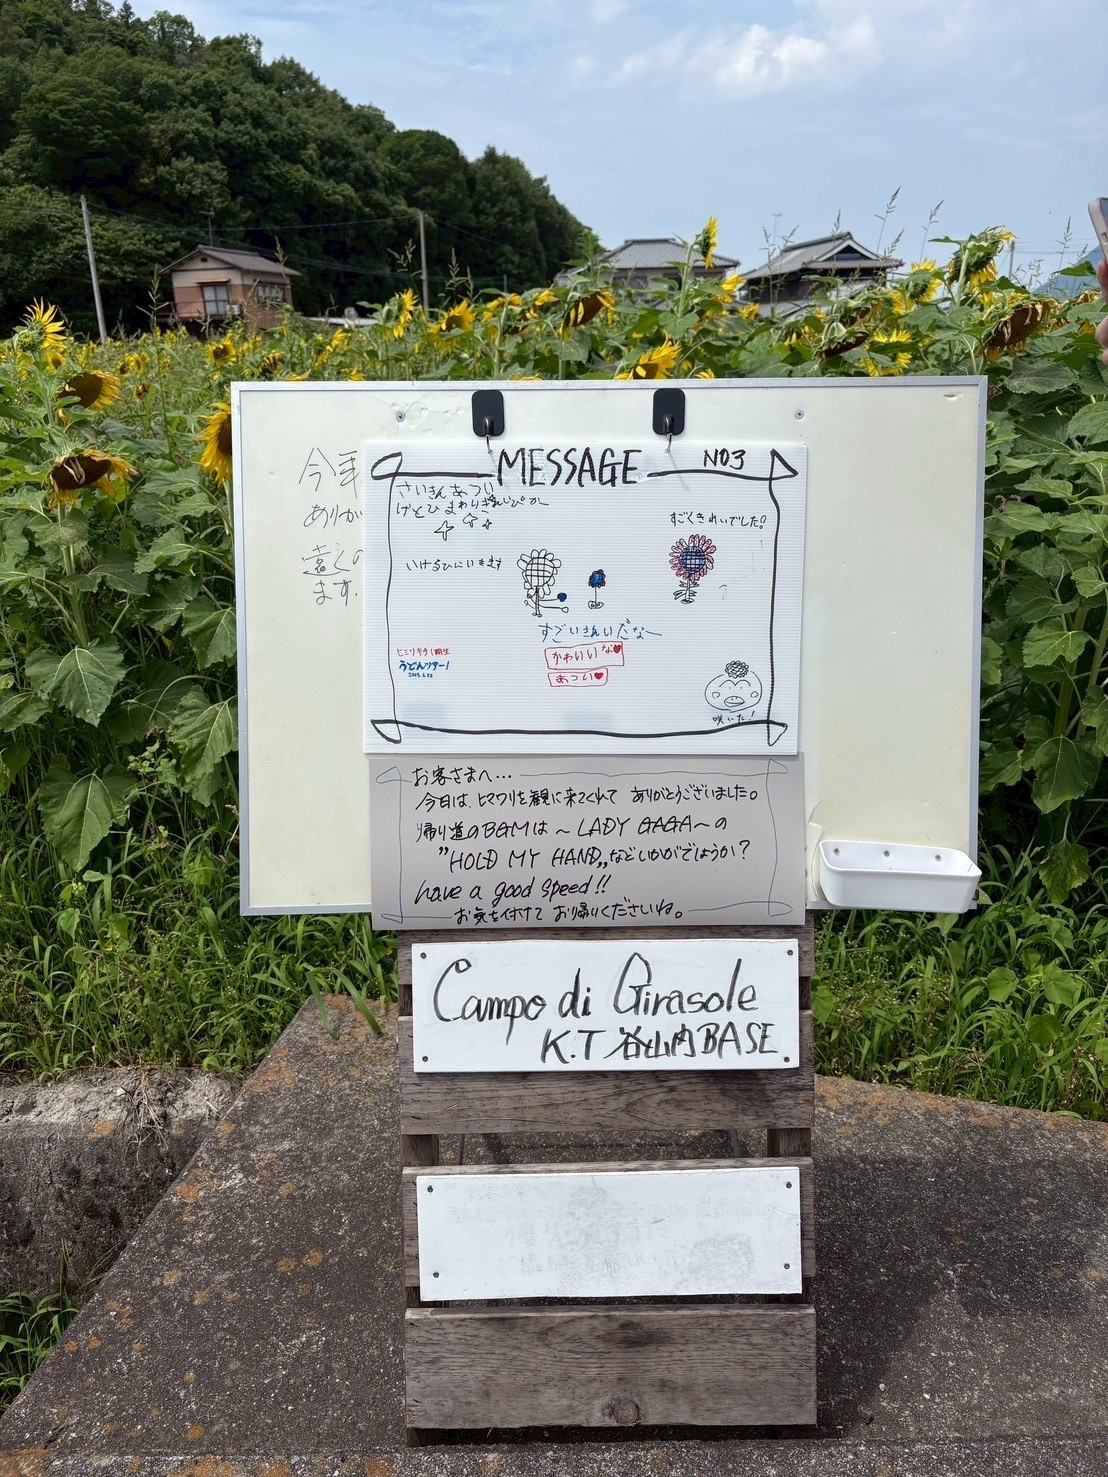 今年
ありが
遠くの
ます.
MESSAGE NO3
さいきんあつい
けどひまわりきれいぴかー
すごくきれいでした!
いけるひにいきます
すごいきれいだなー
かわいいな♥
あつい♥
うどんツアー!
咲いた!
お客さまへ…
今日は、ヒマワリを観に来てくれて ありがとうございました。
帰り道のBGMは~LADY GAGA~の
"HOLD MY HAND„などいかがでしょうか?
have a good speed!!
お気を付けて お帰りくださいね。
Campo di Girasole
K.T 谷山内BASE